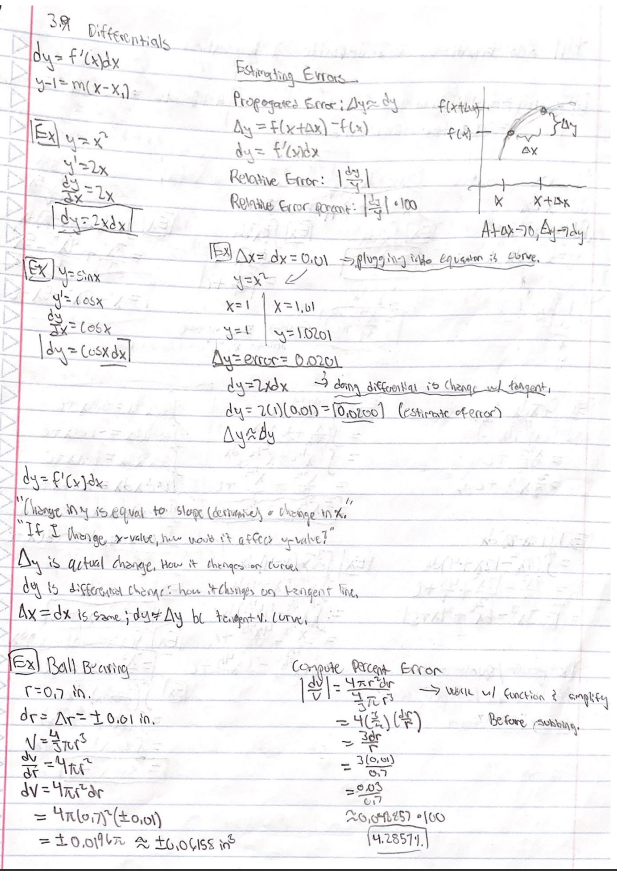 3.9 Differentials
dy = f'(x)dx
y-1 = m(x-x₁)
Ex y = x²
y' = 2x
dy/dx = 2x
dy = 2xdx
Estimating Errors
Propogated Error: Δy ≈ dy
Δy = f(x+Δx) - f(x)
dy = f'(x)dx
Relative Error: |dy/y|
Relative Error percent: |dy/y| • 100
f(x+Δx)
f(x)
Δy
Δx
x x+Δx
As Δx→0, Δy→dy
Ex y = sinx
y' = cosx
dy/dx = cosx
dy = cosxdx
Ex Δx = dx = 0.01 → plugging into equation is curve.
y = x²
x=1 | x=1.01
y=1 | y=1.0201
Δy = error = 0.0201
dy = 2xdx → doing differential is change w/ tangent.
dy = 2(1)(0.01) = 0.0200 (estimate of error)
Δy ≈ dy
dy = f'(x)dx
"Change in y is equal to slope (derivative) • change in x."
"If I change x-value, how would it affect y-value?"
Δy is actual change. How it changes on curve.
dy is differential change: how it changes on tangent line.
Δx = dx is same; dy ≠ Δy bc tangent v. curve.
Ex Ball Bearing
r = 0.7 in.
dr = Δr = ±0.01 in.
V = 4/3 πr³
dv/dr = 4πr²
dV = 4πr²dr
= 4π(0.7)²(±0.01)
= ±0.0196π ≈ ±0.06158 in³
Compute Percent Error
|dV/V| = 4πr²dr / 4/3 πr³ → work w/ function & simplify
Before subbing.
= 4(3/4)(dr/r)
= 3dr/r
= 3(0.01)/0.7
= 0.03/0.7
≈ 0.042857 • 100
4.2857%